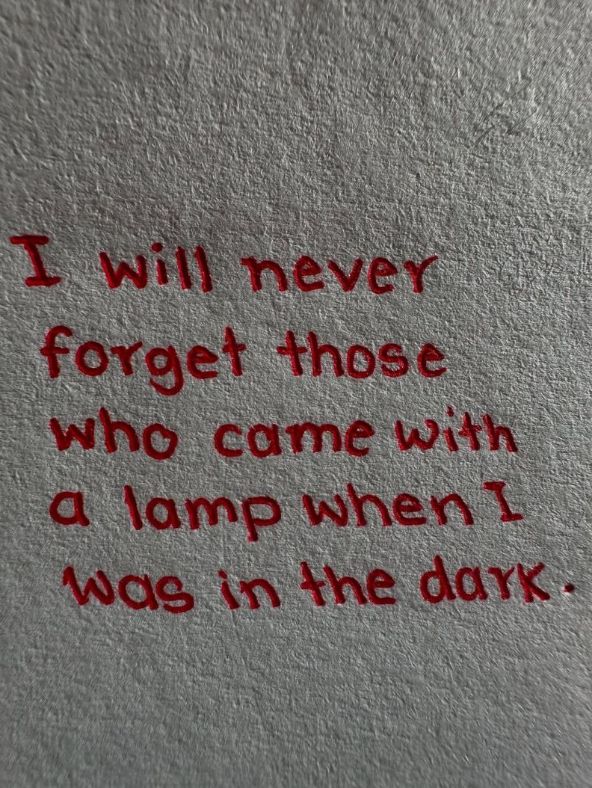 I will never
forget those
who came with
a lamp when I
was in the dark.